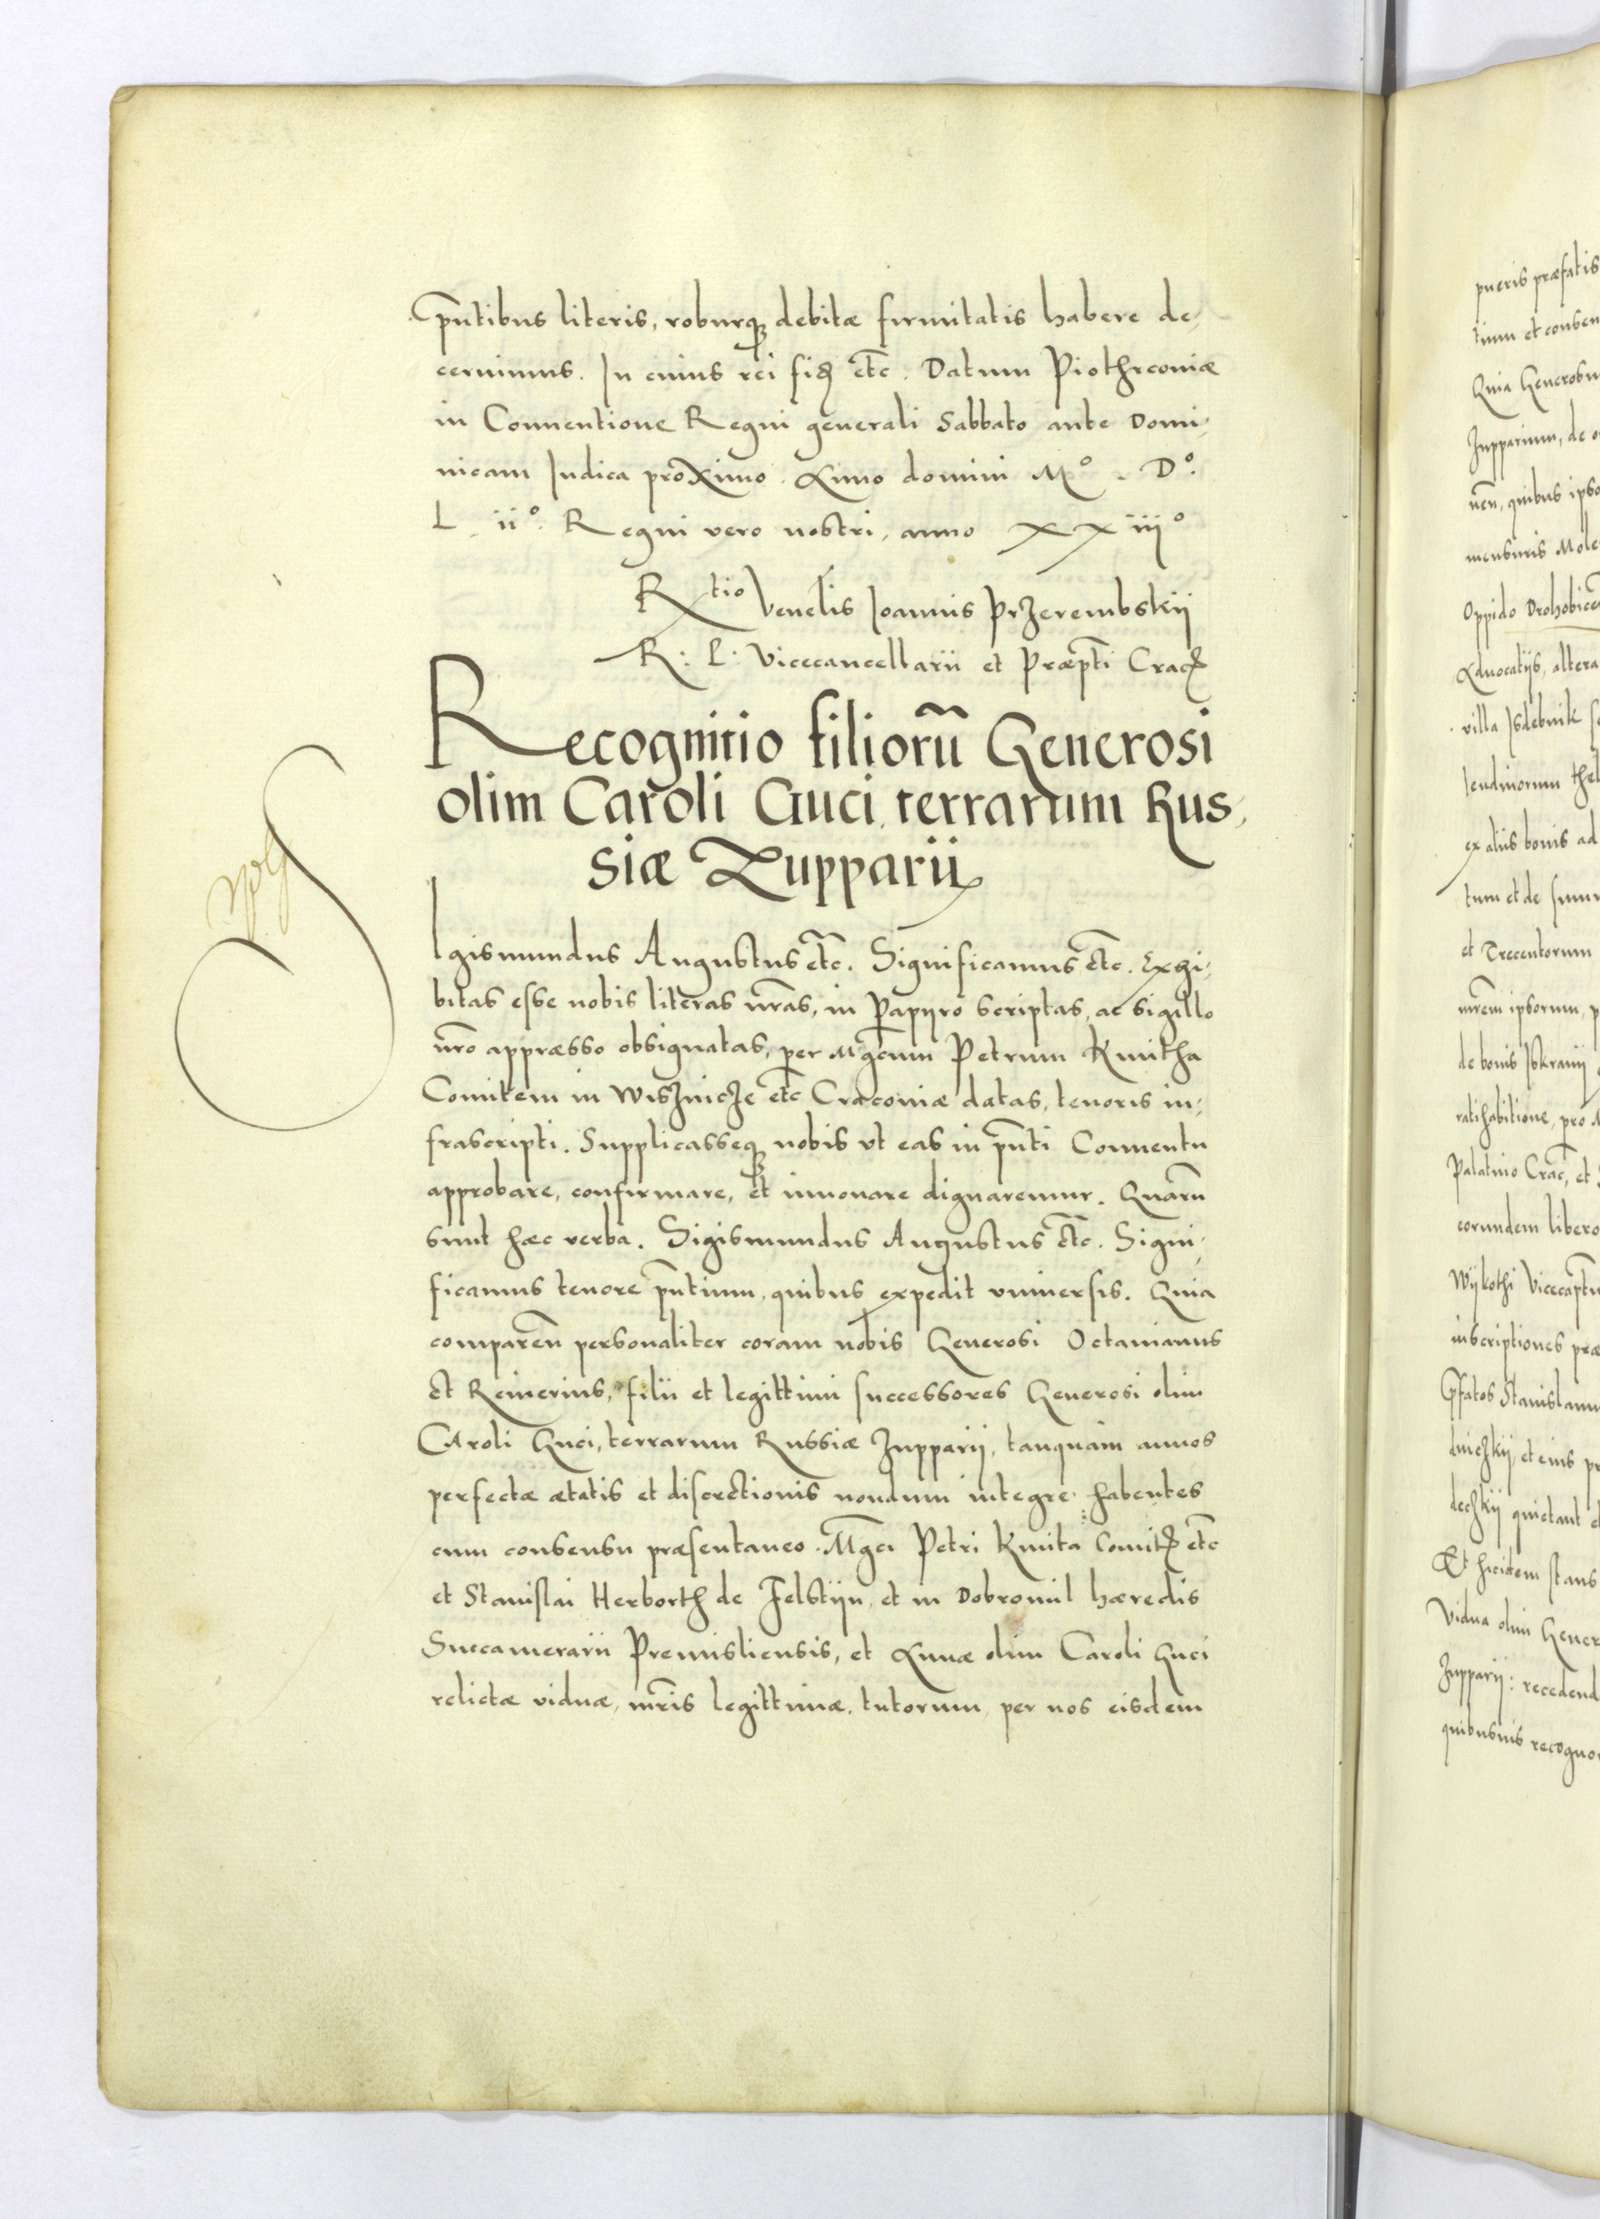 pñtibus literis, roburq̃ debitæ firmitatis habere de,
cernimus. In cuius rei fidẽ etc̃. Datum Piothrconiæ
in Conuentione Regni generali Sabbato ante Domi,
nicam Iudica proximo. Anno domini Mº. Dº.
L iiº. Regni vero nostri, anno xxiiiº
Rtio Venelis Ioannis Przerembskij
R: P: Vicecancellarii et Præpti Crac̃
Recognitio filiorũ Generosi
olim Caroli Guci terrarum Rus,
siæ Zupparij
SIgismundus Augustus etc̃. Significamus etc̃. Exhi,
bitas esse nobis literas nr̃as, in Papyro scriptas, ac sigillo
nr̃o appræsso obsignatas, per Mgcum Petrum Kmitha
Comitem in Wisznicze etc̃ Cracoviæ datas, tenoris in,
frascripti. Supplicasseq̃ nobis vt eas in pñti Conuentu
approbare, confirmare, et innouare dignaremur. Quarũ
sunt hæc verba. Sigismundus Augustus etc̃. Signi,
ficamus tenore pñtium, quibus expedit vniuersis. Quia
comparen̄ personaliter coram nobis Generosi Octauianus
et Reinerius, filii et legittimi successores Generosi olim
Caroli Guci, terrarum Russiæ Zupparij, tanquam annos
perfectæ ætatis et discretionis nondum integre habentes
cum consensu præsentaneo Mgci Petri Kmita Comit̃ etc̃
et Stanislai Herborth de Felstijn, et in Dobromil hæredis
Succamerarii Premisliensis, et Annæ olim Caroli Guci
relictæ viduæ, mr̃is legittimæ, tutorum per nos eisdem
pueris præfatis
Quia
Zupparium, de
quibus
mensuris
Oppido
Aduocatijs, altera
villa Isdebnik
ex aliis bonis ad
tum et de
et Trecentorum
ipsorum,
de bonis
ratihabitione, pro
Palatino Crac̃, et
eorundem
inscriptiones
et eius
quietant
Vidua olim
Zupparij: recedend
quibusuis